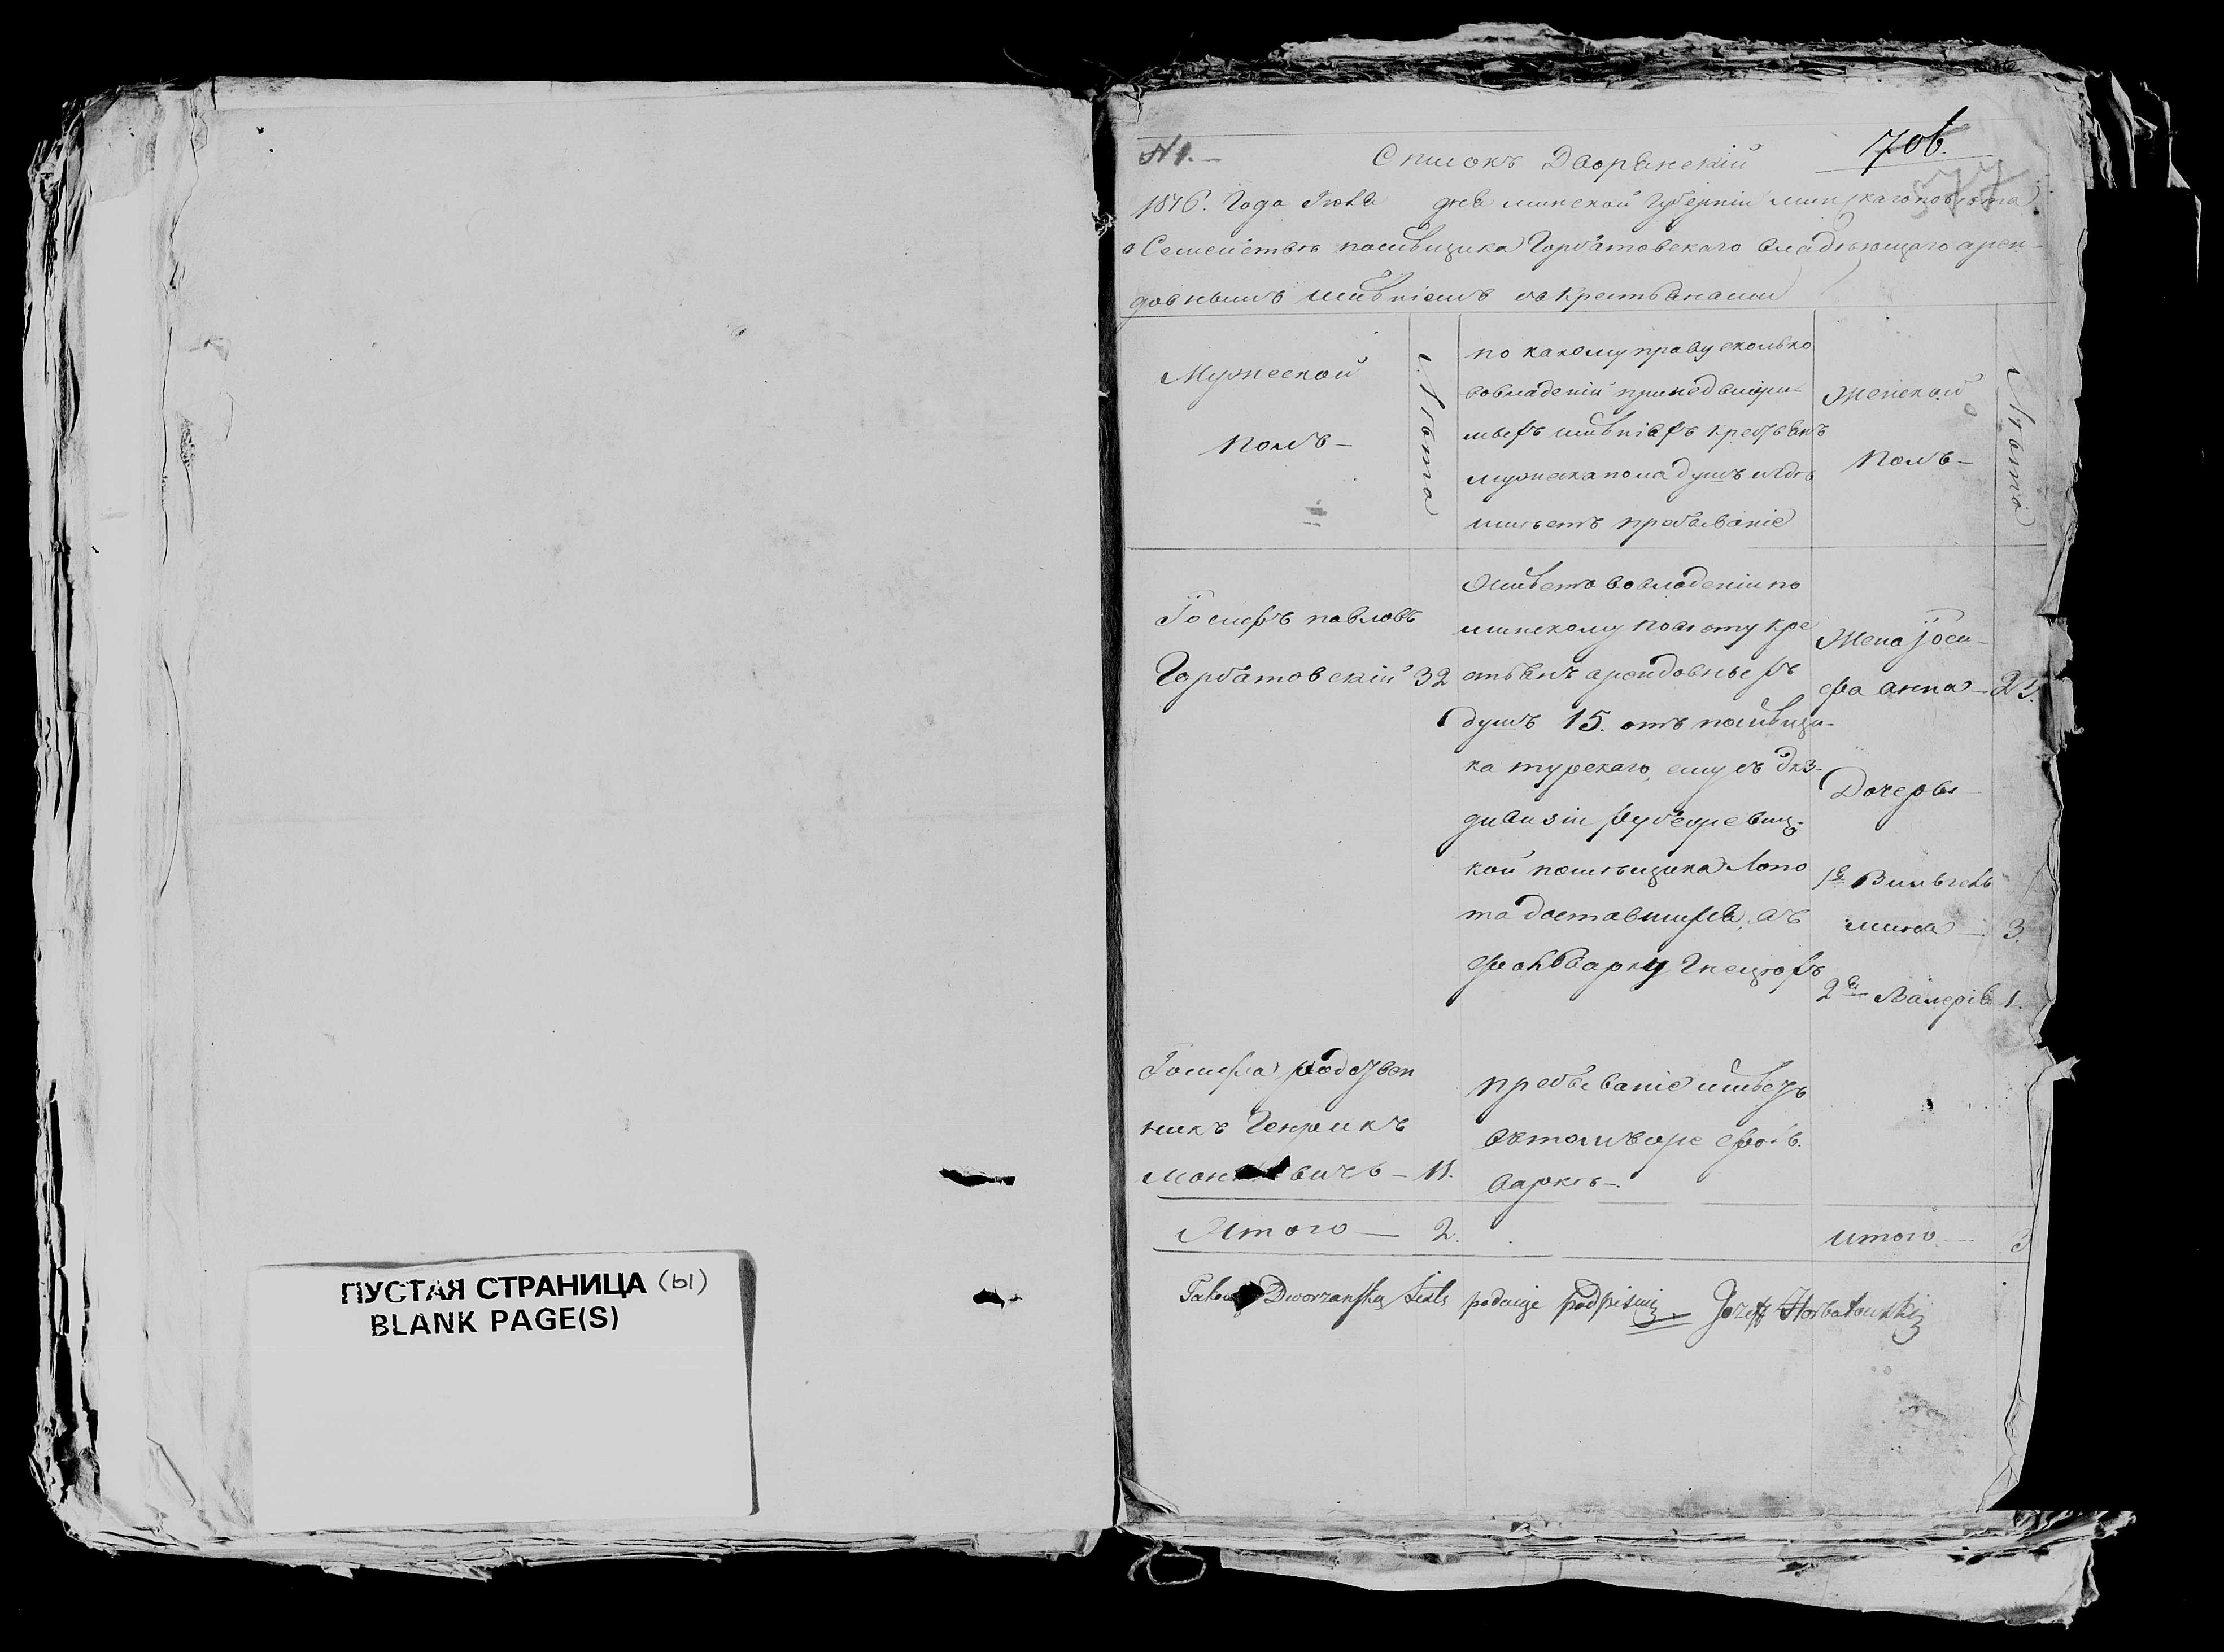 ПУСТАЯ СТРАНИЦА (ы)
BLANK PAGE(S)
№ 1.
706.
Списокъ Дворянскій
1816. Года Июля дня минской Губерніи минскаго повѣта
о Семействѣ помѣщика Горбатовскаго владѣющаго арен-
довнымъ имѣніемъ со крестьянами
Мужеской
полъ —
Лѣта
по какому праву сколько
во владеніи
имѣніяхъ крестьянъ
мужеска пола душъ и гдѣ
имѣетъ пребываніе
Женской
полъ —
Лѣта
Іосифъ павловъ
Горбатовскій 32
Имѣетъ во владеніи по
минскому повѣту кре
стьянъ арендовныхъ
душъ 15. отъ помѣщи-
ка турскаго, ему съ экз-
дивизіи
кой помѣщика Лопо
та доставшихся, въ
фольварку
Жена Іоси-
фа анна —
Дочеры
1я Вильгель
мина — 3.
2я Валерія 1.
Іосифа родствен
никъ Генрикъ
— 11.
пребываніе имѣетъ
втомъ же фоль.
варкѣ —
Итого — 2.
итого — 3
Dworzanską Listę podaię podpisuię — Jozeff Horbatowski